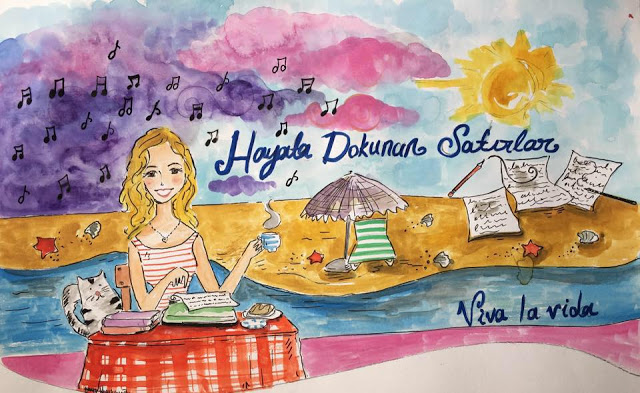 Hayata Dokunan Satırlar
Viva la vida